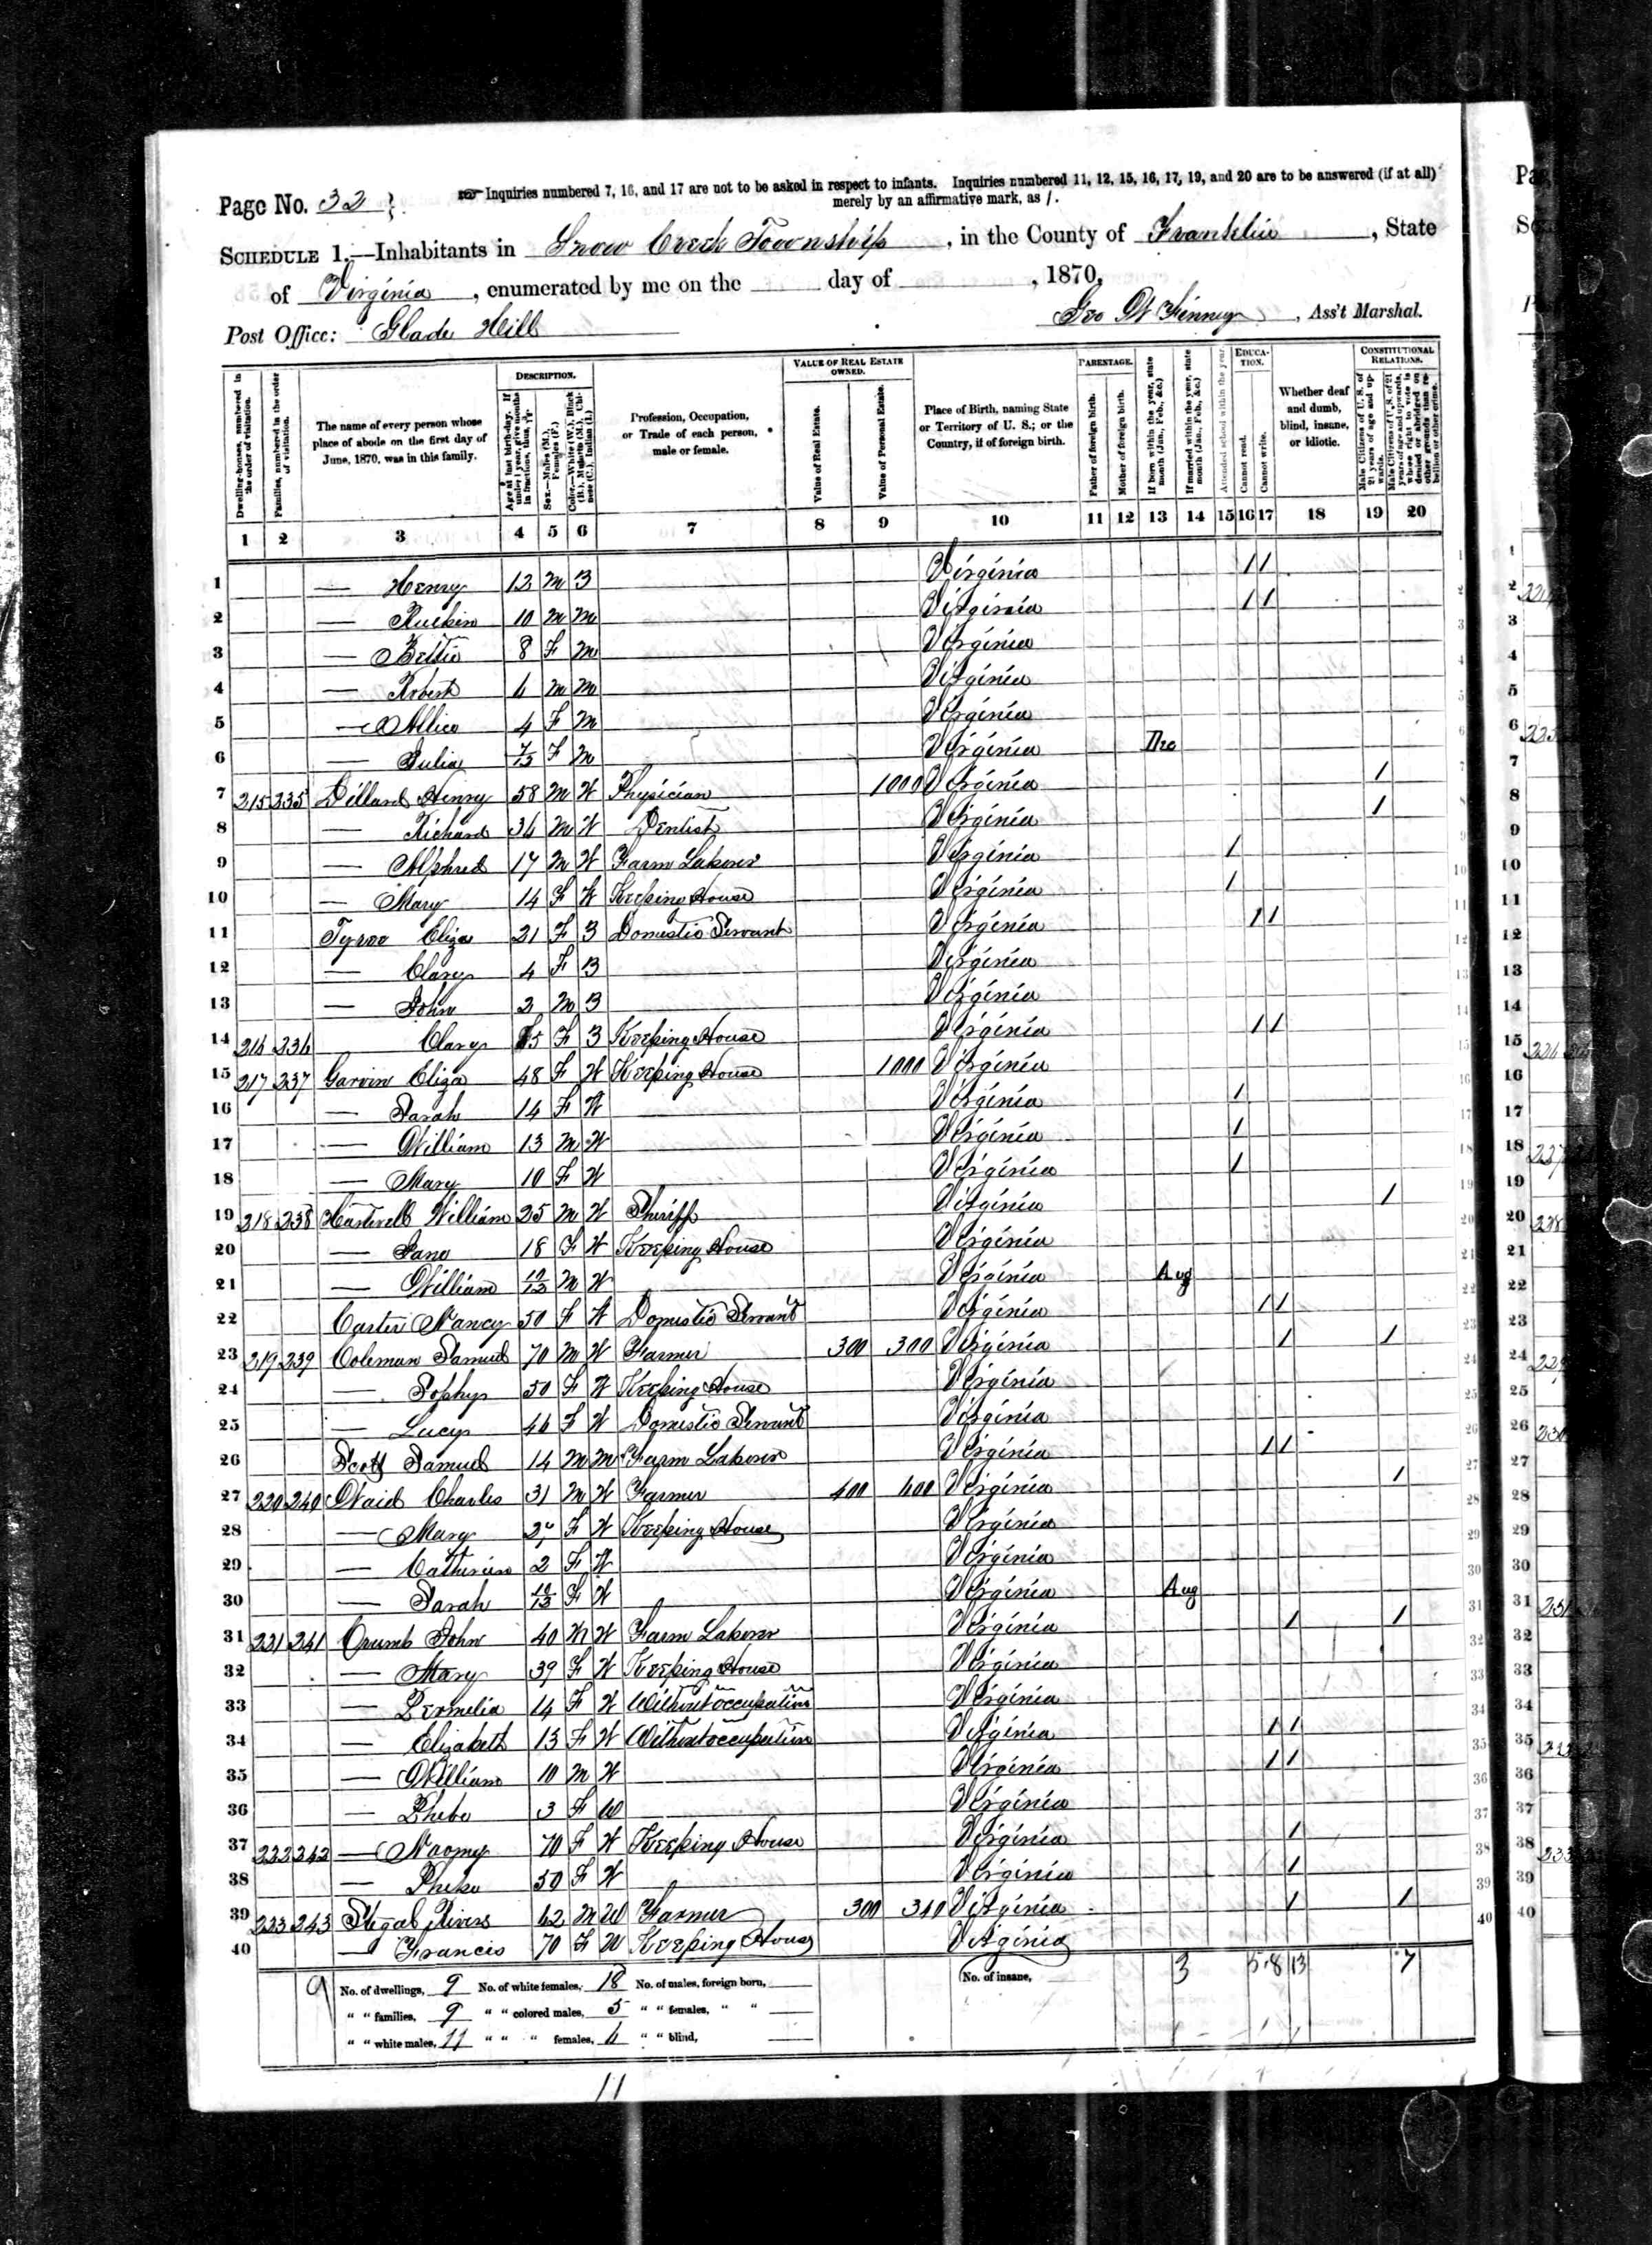 Page No. 32
Inquiries numbered 7, 16, and 17 are not to be asked in respect to infants. Inquiries numbered 11, 12, 15, 16, 17, 19, and 20 are to be answered (if at all)
merely by an affirmative mark, as /.
SCHEDULE 1.—Inhabitants in Snow Creek Township, in the County of Franklin, State
of Virginia, enumerated by me on the day of , 1870.
Post Office: Glade Hill
Geo W Finney, Ass't Marshal.
Dwelling-houses, numbered in the order of visitation.
Families, numbered in the order of visitation.
The name of every person whose place of abode on the first day of June, 1870, was in this family.
DESCRIPTION.
Age at last birth-day. If under 1 year, give months in fractions, thus, 3/12
Sex.—Males (M.), Females (F.)
Color.—White (W.), Black (B.), Mulatto (M.), Chinese (C.), Indian (I.)
Profession, Occupation, or Trade of each person, male or female.
VALUE OF REAL ESTATE OWNED.
Value of Real Estate.
Value of Personal Estate.
Place of Birth, naming State or Territory of U. S.; or the Country, if of foreign birth.
PARENTAGE.
Father of foreign birth.
Mother of foreign birth.
If born within the year, state month (Jan., Feb., &c.)
If married within the year, state month (Jan., Feb., &c.)
Attended school within the year.
EDUCATION.
Cannot read.
Cannot write.
Whether deaf and dumb, blind, insane, or idiotic.
CONSTITUTIONAL RELATIONS.
Male Citizens of U. S. of 21 years of age and upwards.
Male Citizens of U. S. of 21 years of age and upwards, whose right to vote is denied or abridged on other grounds than rebellion or other crime.
1 2 3 4 5 6 7 8 9 10 11 12 13 14 15 16 17 18 19 20
1 — Henry 12 M B Virginia / /
2 — 10 M M Virginia / /
3 — Bettie 8 F M Virginia
4 — Robert 6 M M Virginia
5 — Allice 4 F M Virginia
6 — Julia F M Virginia Dec
7 215 235 Dillard Henry 58 M W Physician 1000 Virginia /
8 — Richard 36 M W Dentist Virginia /
9 — Alphred 17 M W Farm Laborer Virginia /
10 — Mary 14 F W Keeping House Virginia /
11 Tyree Eliza 21 F B Domestic Servant Virginia / /
12 — Clary 4 F B Virginia
13 — John 2 M B Virginia
14 216 236 Clary F B Keeping House Virginia / /
15 217 237 Garvin Eliza 48 F W Keeping House 1000 Virginia
16 — Sarah 14 F W Virginia /
17 — William 13 M W Virginia /
18 — Mary 10 F W Virginia /
19 218 238 William 25 M W Sheriff Virginia /
20 — Jane 18 F W Keeping House Virginia
21 — William 10/12 M W Virginia Aug
22 Carter Nancy 50 F W Domestic Servant Virginia / /
23 219 239 Coleman Samuel 70 M W Farmer 300 300 Virginia / /
24 — Sophy 50 F W Keeping House Virginia
25 — Lucy 46 F W Domestic Servant Virginia
26 Scott Samuel 14 M M Farm Laborer Virginia / /
27 220 240 Waid Charles 31 M W Farmer 400 600 Virginia /
28 — Mary 27 F W Keeping House Virginia
29 — Catherine 2 F W Virginia
30 — Sarah 10/12 F W Virginia Aug
31 221 241 Crumb John 40 M W Farm Laborer Virginia / /
32 — Mary 39 F W Keeping House Virginia
33 — Permelia 14 F W Without occupation Virginia
34 — Elizabeth 13 F W Without occupation Virginia / /
35 — William 10 M W Virginia / /
36 — Phebe 3 F W Virginia
37 222 242 — Naomy 70 F W Keeping House Virginia /
38 — 50 F W Virginia /
39 223 243 Stegal Rivers 62 M W Farmer 300 310 Virginia / /
40 — Francis 70 F W Keeping House Virginia
9 No. of dwellings, 9 No. of white females, 18 No. of males, foreign born, No. of insane, 3 5 8 13 7
" " families, 9 " " colored males, 5 " " females, " "
" " white males, 11 " " " females, 6 " " blind,
11